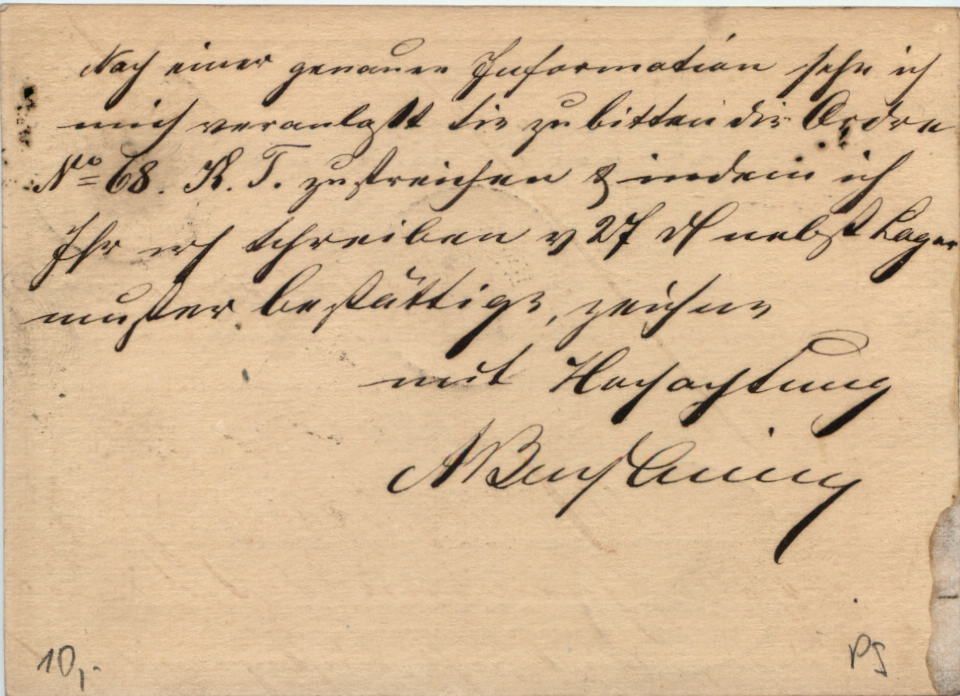 Nach einer genauen Information sehe ich
mich veranlaßt Sie zu bitten die Ordre
No 68. K. T. zu streichen & indem ich
Ihr Schreiben v 27 d nebst Lager
muster bestättige, zeichne
mit Hochachtung
10,- PS